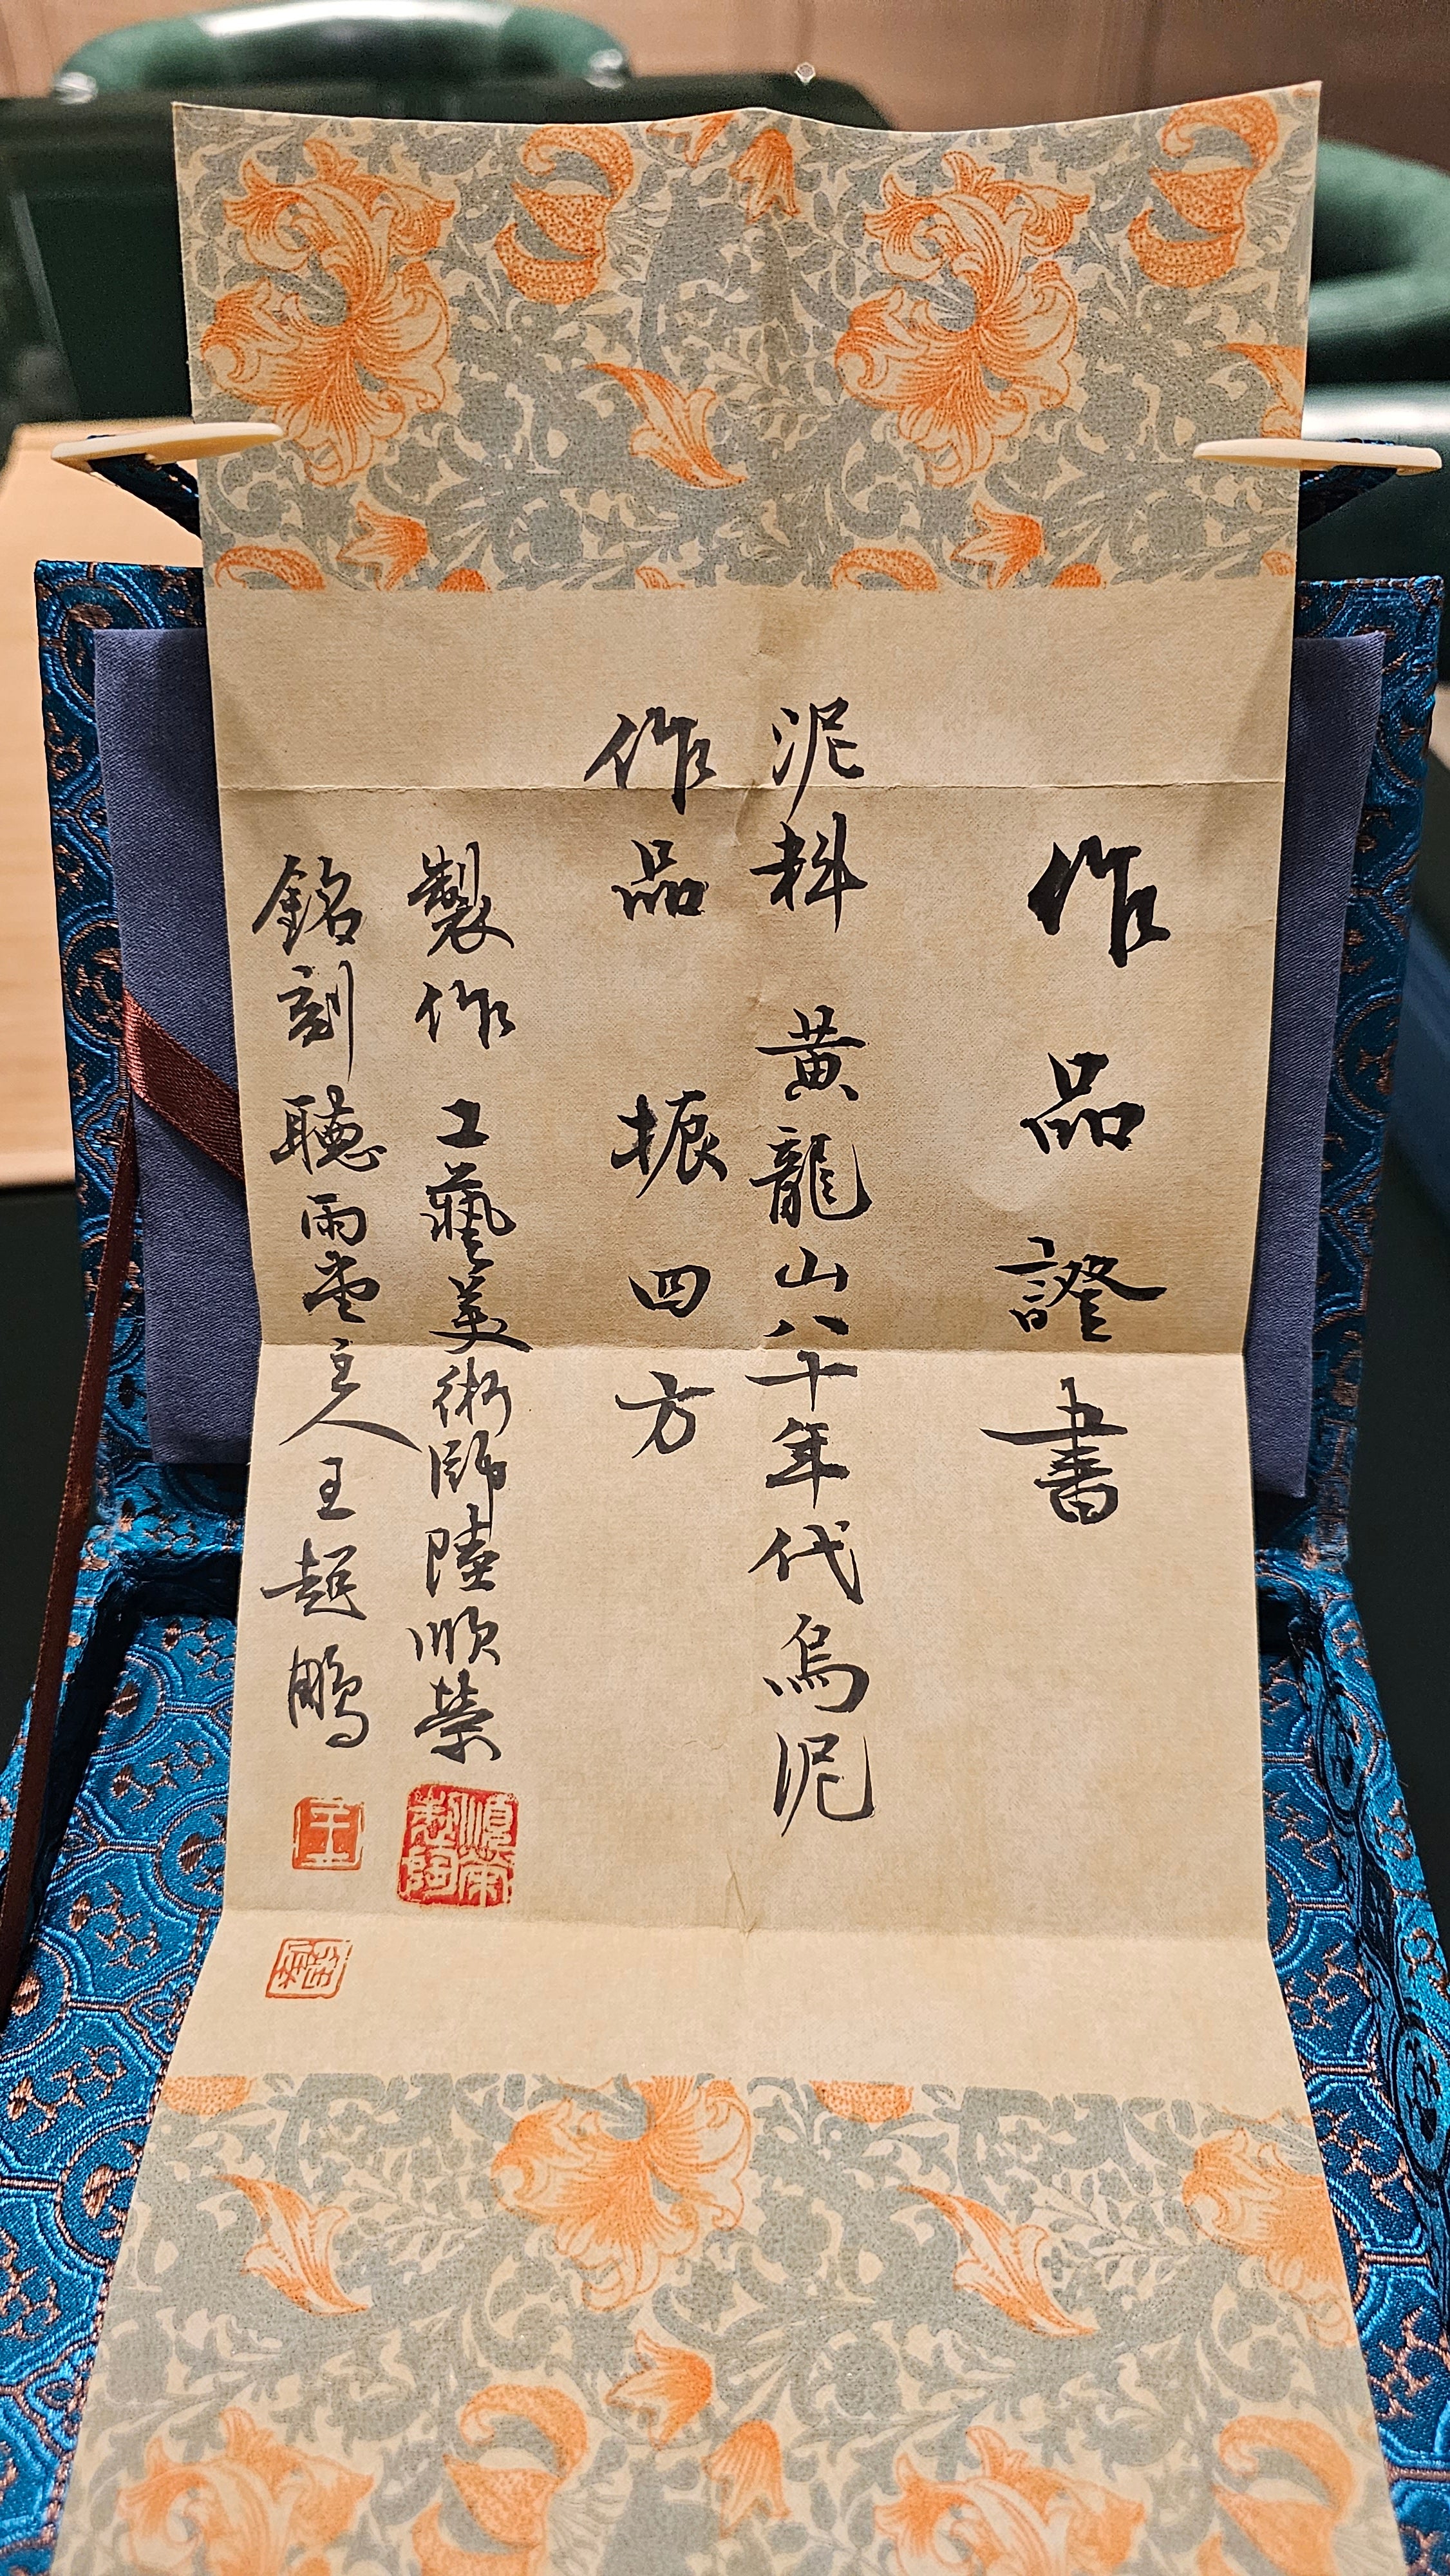 作品證書
泥料 黃龍山八十年代烏泥
作品 振四方
製作 工藝美術師陸順榮
銘刻 聽雨壺主人王超鵬
順榮制陶
王